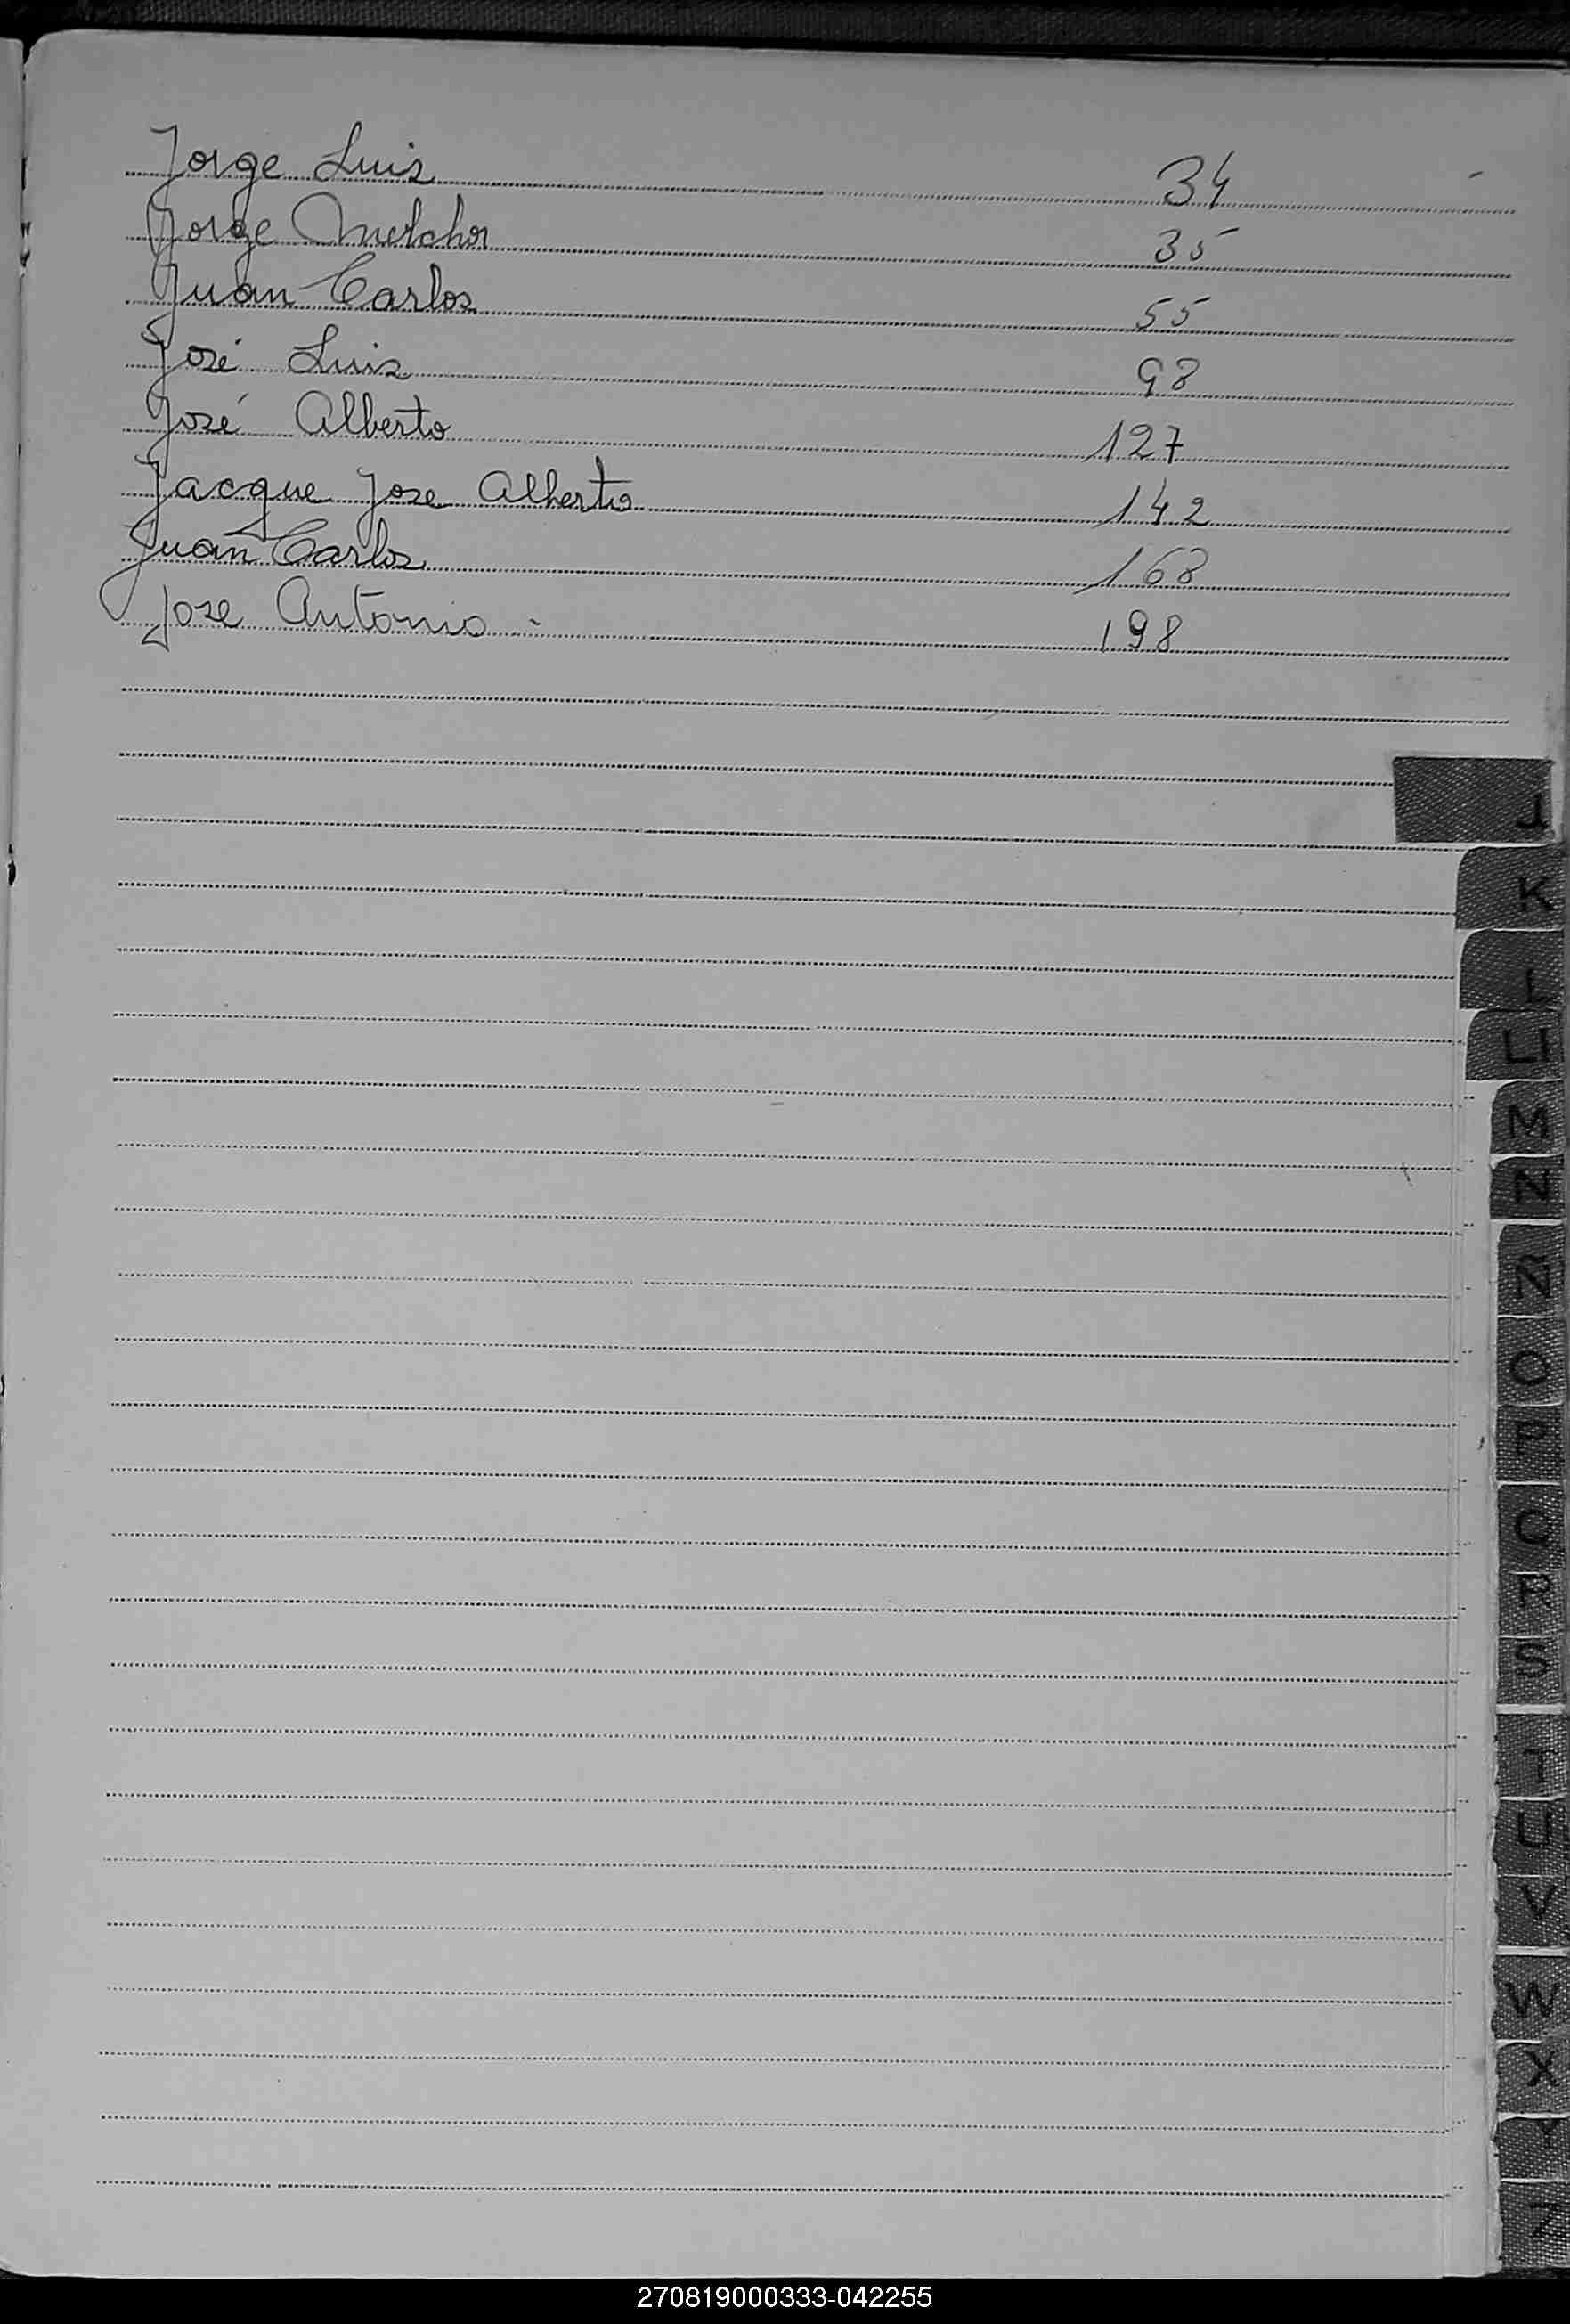 Jorge Luis 34
Jorge Melchor 35
Juan Carlos 55
José Luis 98
José Alberto 127
Jacque Jose Alberto 142
Juan Carlos 168
Jose Antonio - 198
J
K
L
LL
M
N
Ñ
O
P
Q
R
S
T
U
V
W
X
Y
Z
270819000333-042255